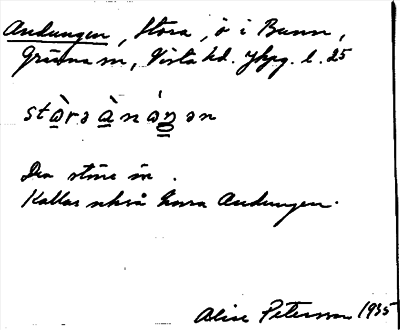 Andungen, Stora, ö i Bunn,
Gränna sn, Vista hd. Jkpg. l. 25
stɔ̀rə àn ə́ŋ ən
Den större ön.
Kallas också bara Andungen.
Alice Petersson 1935